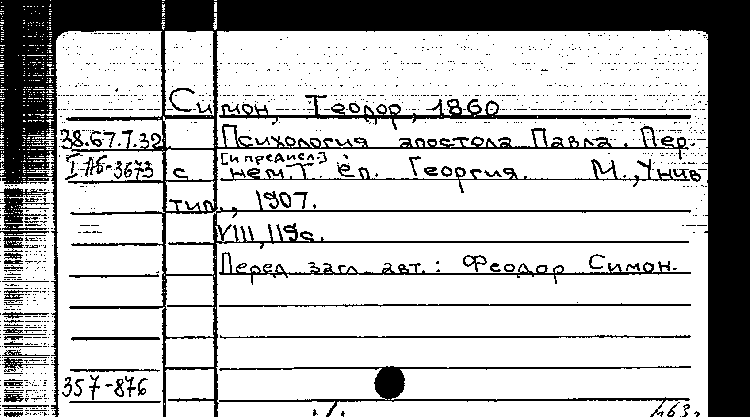 Симон, Теодор, 1860
38.67.7.32 Психология апостола Павла. Пер.
[и предисл.]
I АБ-3673 с нем. Г. еп. Георгия. М., Унив
тип., 1907.
VIII, 119с.
Перед загл. авт.: Феодор Симон.
357-876